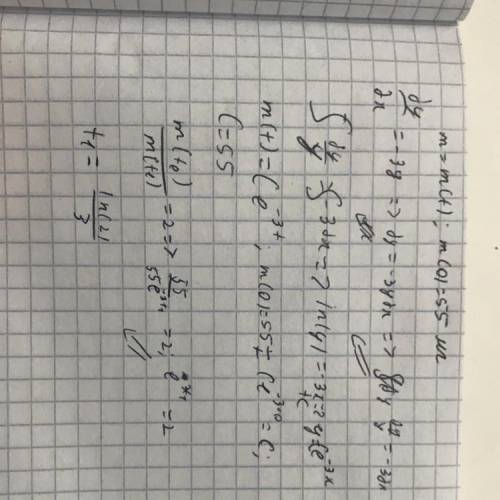 m = m(t); m(0) = 55 мг
dy/dx = -3y => dy = -3ydx => dy/y = -3dx
∫ dy/y = ∫ -3dx => ln(y) = -3x + C => y = Ce^-3x
m(t) = C e^-3t; m(0) = 55; Ce^-3·0 = C;
C = 55
m(t₀)/m(t₁) = 2 => 55/55e^-3t₁ = 2; e^3t₁ = 2
t₁ = ln(2)/3